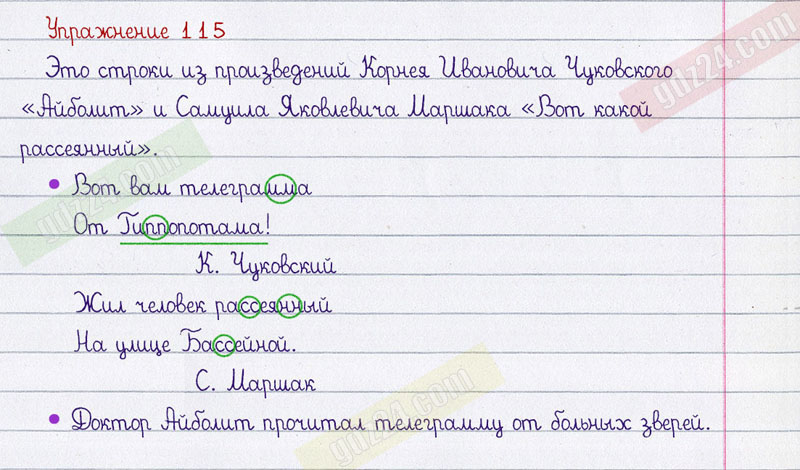 Упражнение 115
Это строки из произведений Корнея Ивановича Чуковского
«Айболит» и Самуила Яковлевича Маршака «Вот какой
рассеянный».
• Вот вам телеграмма
От Гиппопотама!
К. Чуковский
Жил человек рассеянный
На улице Бассейной.
С. Маршак
• Доктор Айболит прочитал телеграмму от больных зверей.
gdz24.com
gdz24.com
gdz24.com